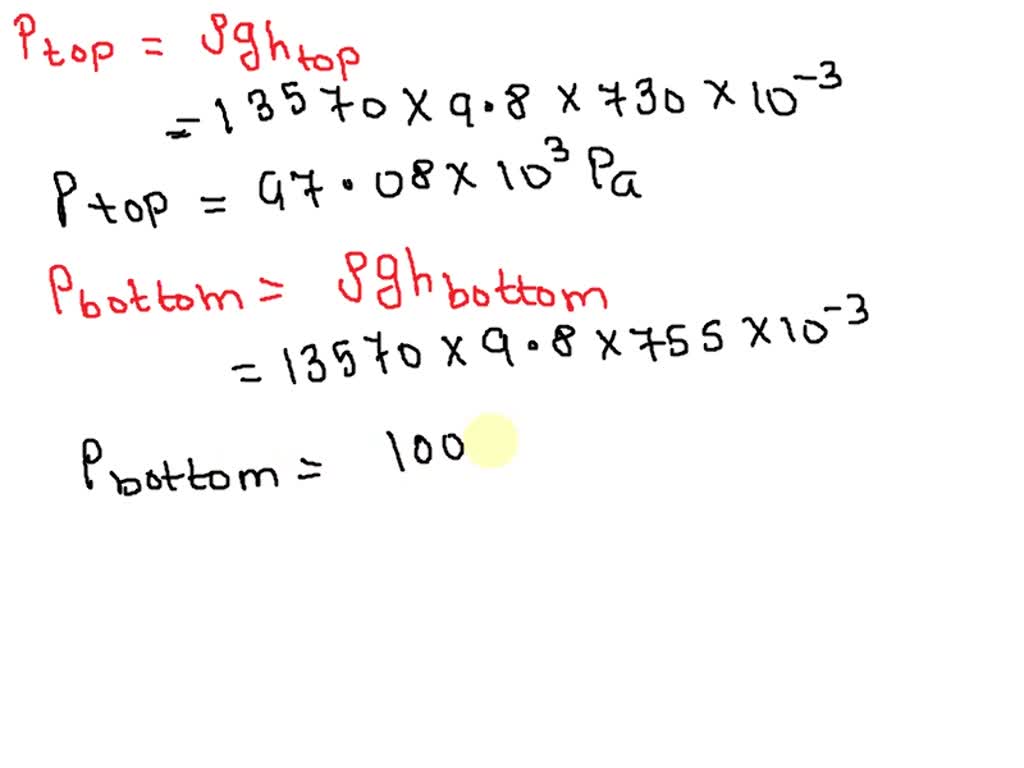 P top = ρgh top
= 13570 × 9.8 × 730 × 10⁻³
P top = 97.08 × 10³ Pa
P bottom = ρgh bottom
= 13570 × 9.8 × 755 × 10⁻³
P bottom = 100